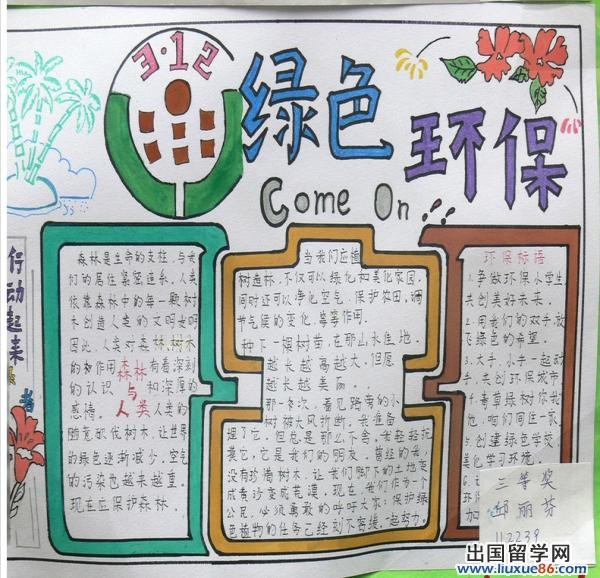 3·12
绿色
环保
Come On
行动起来
森林是生命的支柱,与我
们的居住紧密连系,人类
依靠森林中的每一颗树
木创造人类的文明发明
因此,人类对森林,树木
的和作用森林有着深刻
的认识 与 和深厚的
感情。人类人类的
随意砍伐树木,让世界
的绿色逐渐减少,空气
的污染也越来越重。
现在应保护森林。
当我们应植
树造林,不仅可以绿化和美化家园,
同时还可以净化空气,保护农田,调
节气候的变化,等等作用。
种下一颗树苗,在那山水佳地,
越长越高越大,但愿
越长越美丽。
那一次,看见路旁的小
树被大风折断,我准备
埋了它,但总是那么不舍,我轻轻抚
莫它,它是我们的朋友,曾经的我,
没有珍惜树木,让我们脚下的土地变
成黄沙变成荒漠,现在,我们作为一个
公民,必须勇敢的呼吁大家:保护绿
色植物的任务已经刻不容缓,一起努力。
环保标语
1.争做环保小学生
共创美好未来。
2.用我们的双手放
飞绿色的希望。
3.大手,小手一起动
手,共创环保城市
4.青草绿树你我
他,咱们同住一家
5.创建绿色学校,
美化学习环境。
6.
环保
加
三等奖
邱丽芬
112239
出国留学网
www.liuxue86.com